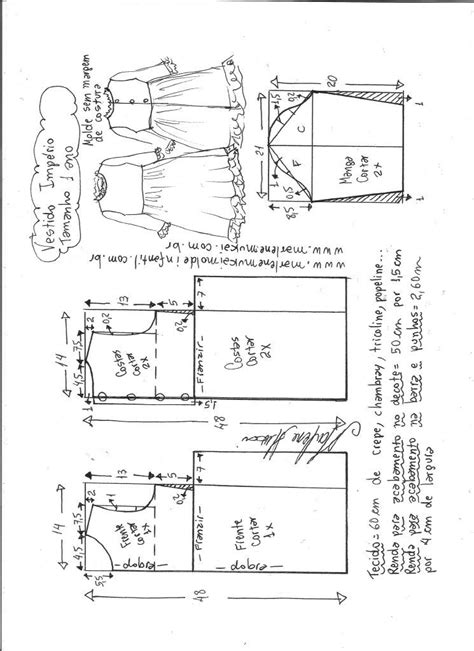 Vestido Império
Tamanho 1 ano
Molde sem margem
de costura
www.marlenemukaimoldeinfantil.com.br
www.marlenemukai.com.br
20
21
8,5
0,5
1,5
0,2
F
C
Manga
Cortar
2x
1
1
14
4,5
7,5
2
1
13
5
0,2
0,2
7
Costas
Cortar
2x
- Franzir -
Costas
Cortar
2x
1,5
48
Marlene Mukai
14
4,5
7,5
2
1
13
5
0,2
7
5,5
Frente
Cortar
1x
- dobra -
- Franzir -
Frente
Cortar
1x
- dobra -
48
Tecido = 60 cm de crepe, chambray, tricoline, popeline...
Renda para acabamento no decote = 50 cm por 1,5 cm
Renda para acabamento na barra e punhos = 2,60 m
por 4 cm de largura